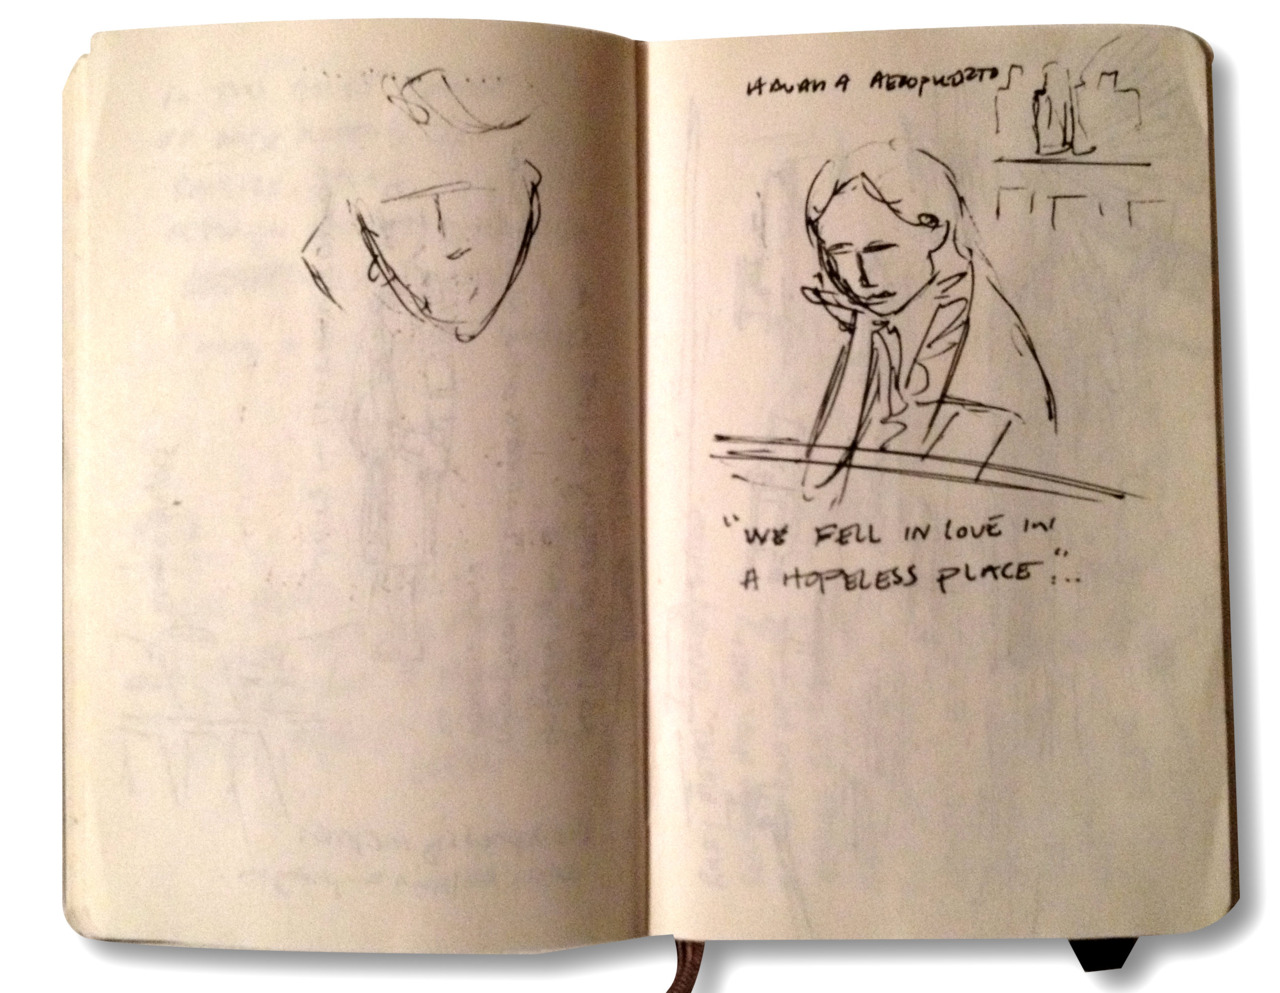 HAVANA AEROPUERTO
"WE FELL IN LOVE IN
A HOPELESS PLACE"...